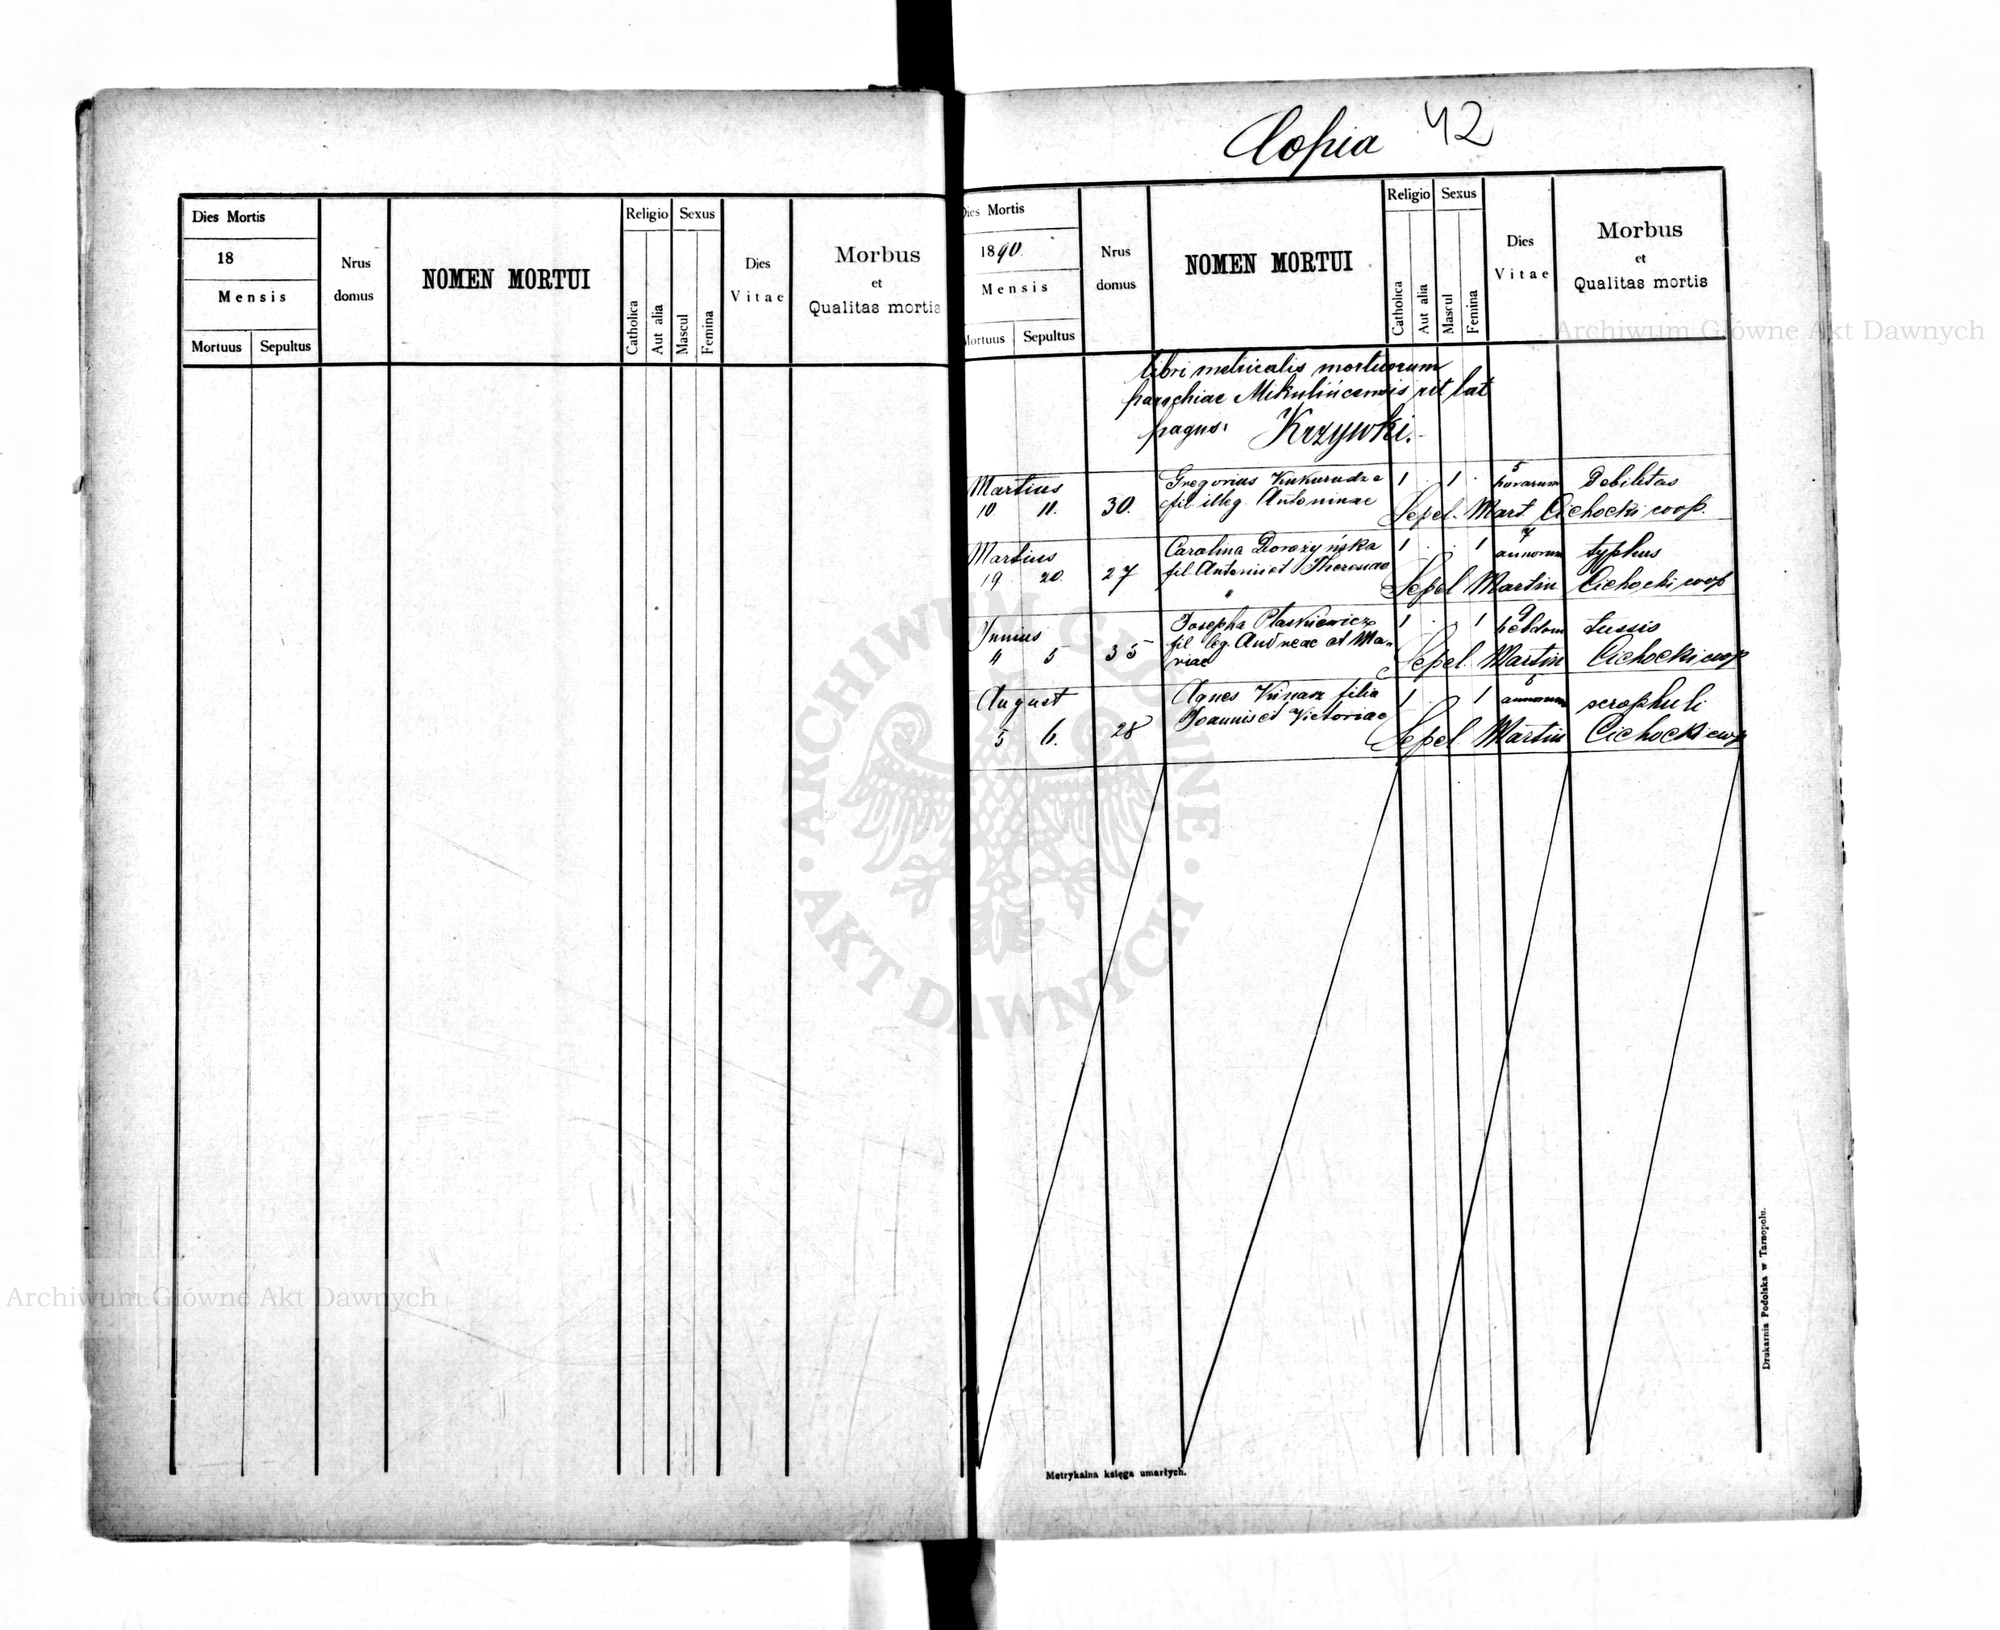 Dies Mortis
18
Mensis
Mortuus Sepultus
Nrus
domus
NOMEN MORTUI
Religio
Catholica
Aut alia
Sexus
Mascul
Femina
Dies
Vitae
Morbus
et
Qualitas mortis
Copia 42
Dies Mortis
1890.
Mensis
Mortuus Sepultus
Nrus
domus
NOMEN MORTUI
Religio
Catholica
Aut alia
Sexus
Mascul
Femina
Dies
Vitae
Morbus
et
Qualitas mortis
libri metricalis mortuorum
parochiae Mikulińcensis rit lat
pagus: Krzywki.
Martius
10 11. 30.
Gregorius Kukurudza
fil illeg. Antoninae
1 1
5
horarum
Debilitas
Sepel. Mart. Cichocki coop.
Martius
19 20. 27
Carolina Dorożyńska
fil Antonii et Theresiae
1 1
7
annorum
typhus
Sepel Martin Cichocki coop
Junius
4 5 35
Josepha Płaskiewicz
fil leg. Andreae et Ma-
riae
1 1
9
hebdom
tussis
Sepel Martin Cichocki coop
August
5 6. 28
Agnes filia
Joannis et Victoriae
1 1
5
annorum
scrophuli
Sepel Martin Cichocki coop
Metrykalna księga umarłych.
Drukarnia Podolska w Tarnopolu.
Archiwum Główne Akt Dawnych
Archiwum Główne Akt Dawnych
ARCHIWUM GŁÓWNE
AKT DAWNYCH